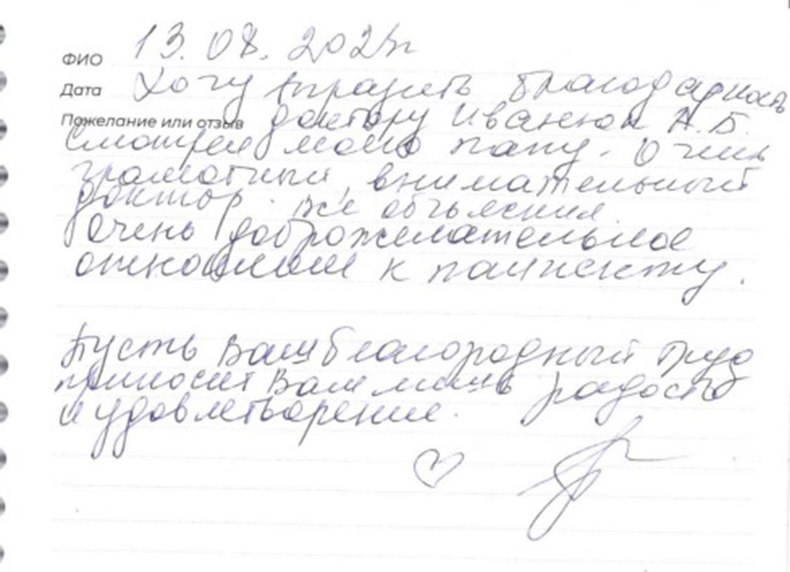 ФИО 13.08.2024г
Дата Хочу выразить благодарность
Пожелание или отзыв доктору Иванюк А.Б.
Смотрел моего папу. Очень
грамотный, внимательный
доктор. Все объяснил.
Очень доброжелательное
отношение к пациенту.
Пусть Ваш благородный труд
приносит Вам лишь радость
и удовлетворение.